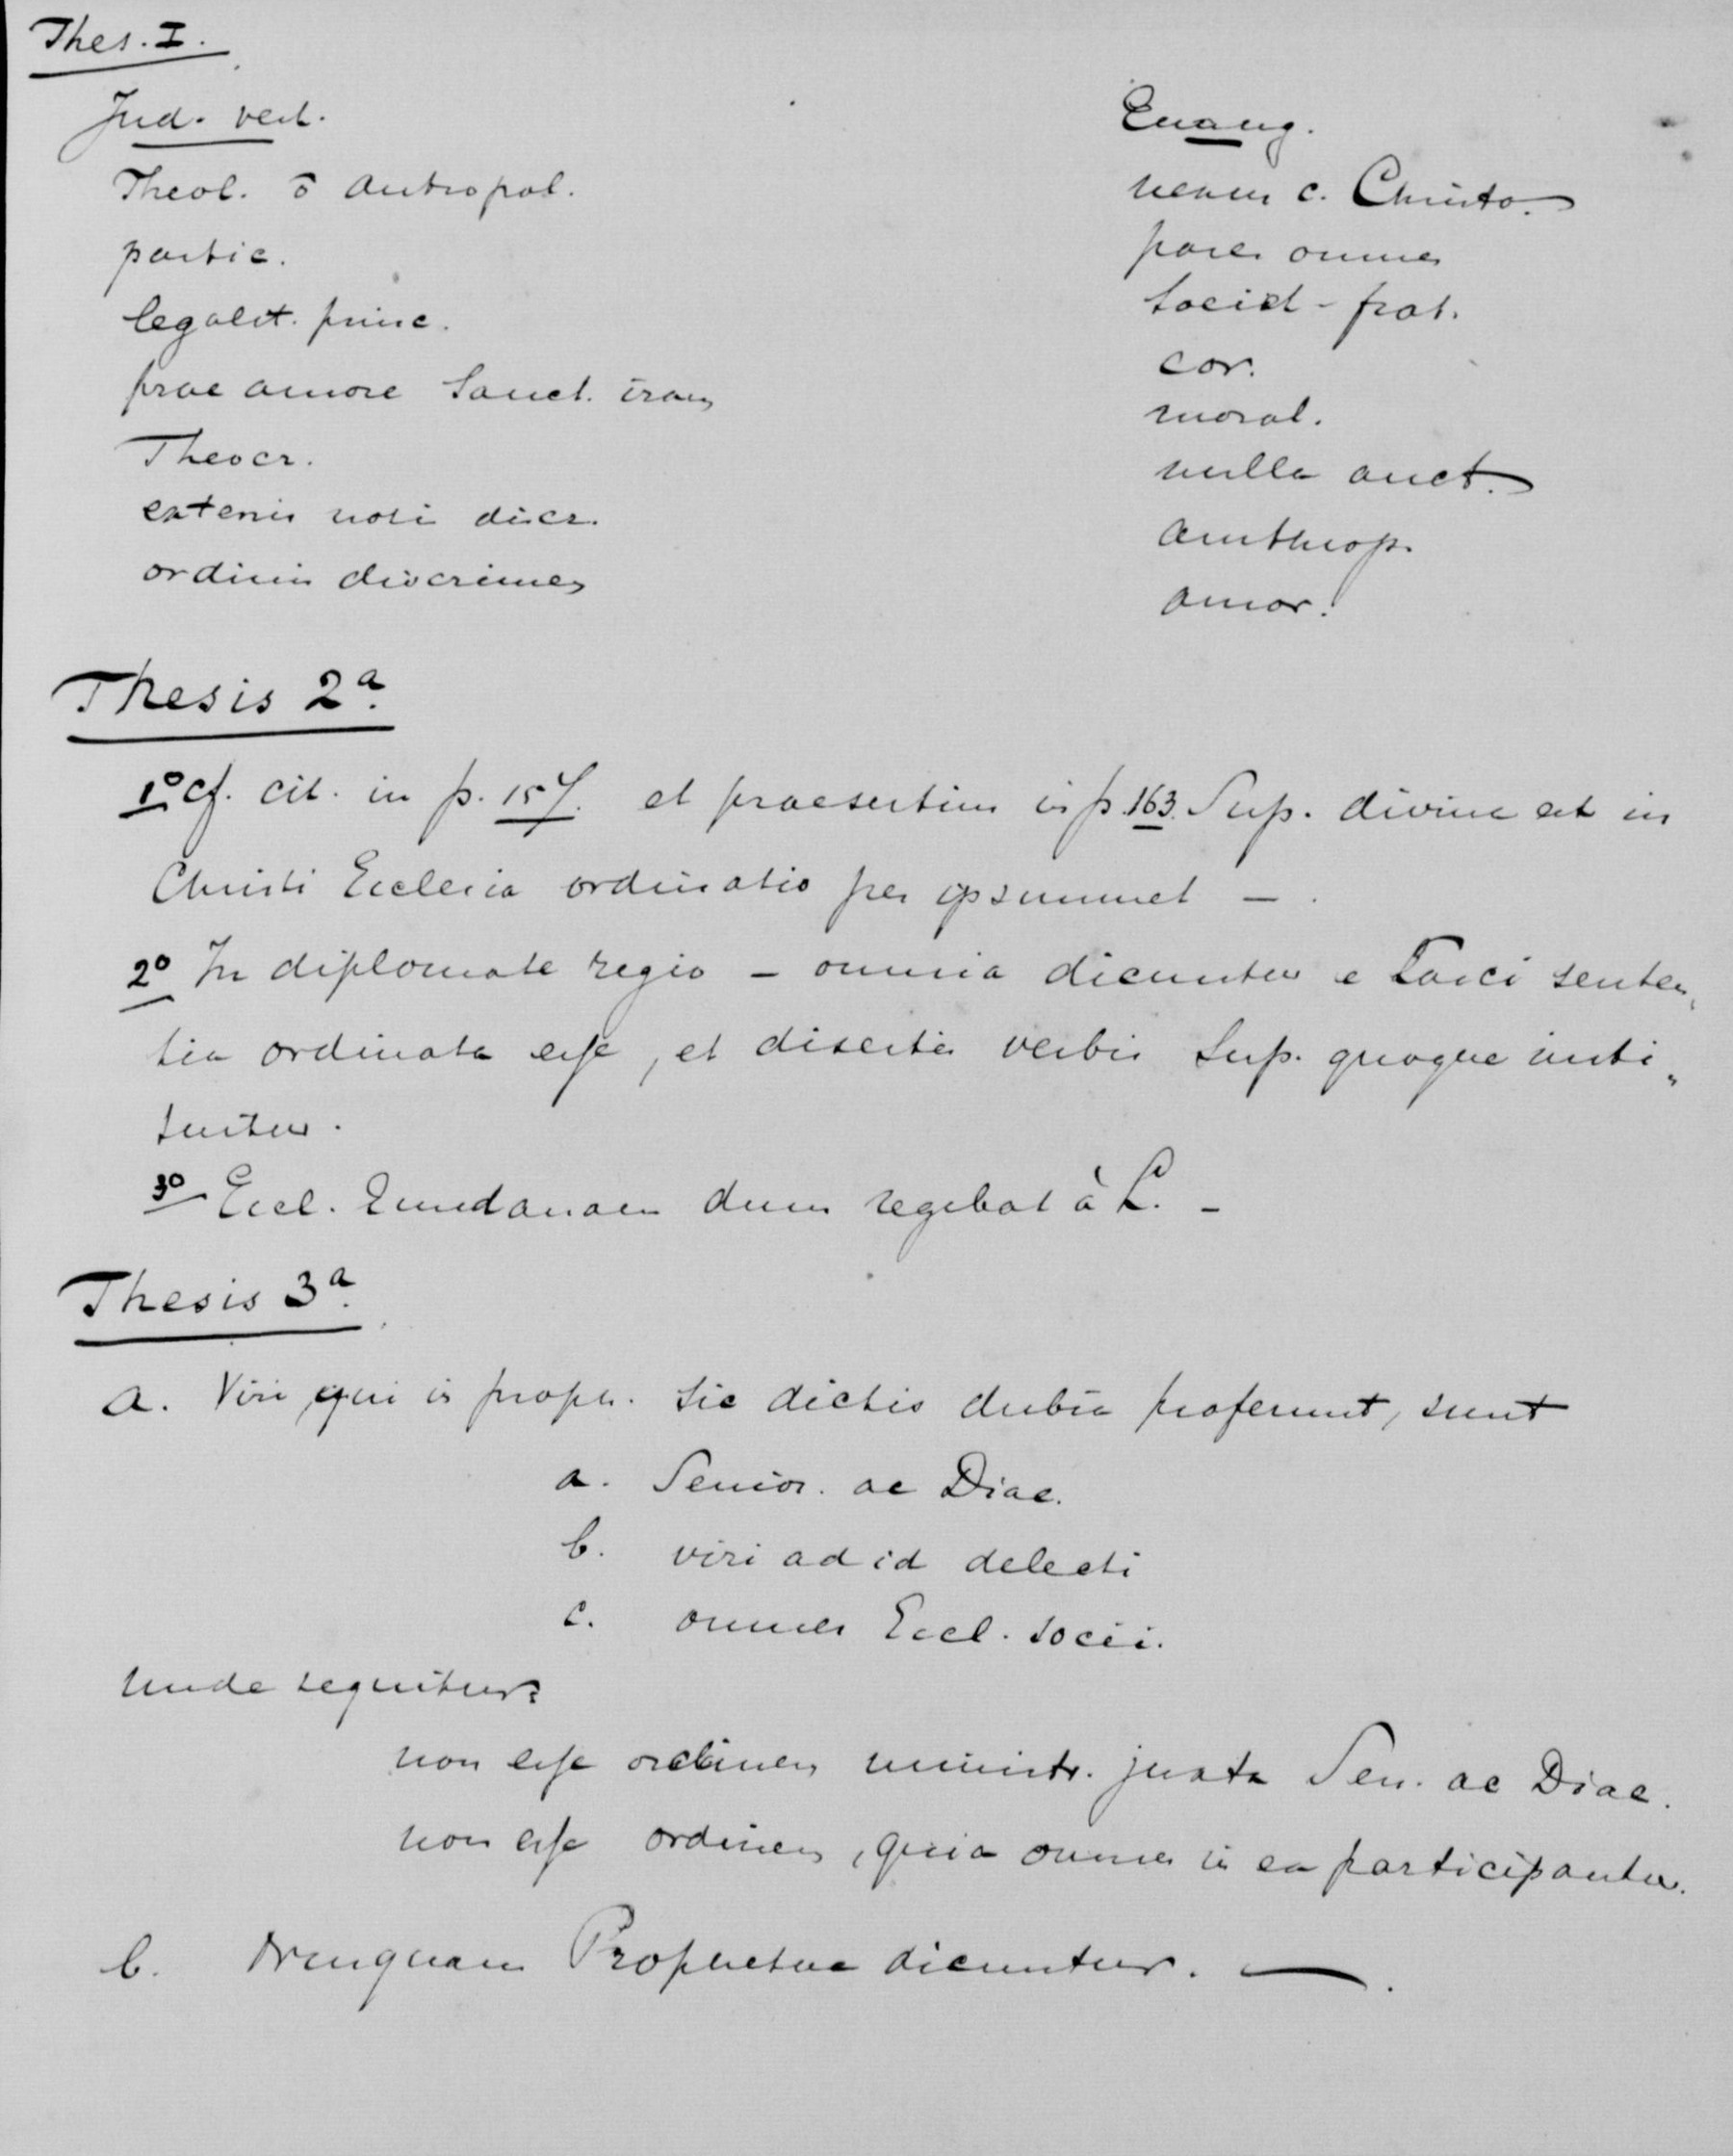 Thes. I.
Jud. vest.
Theol. ō Antropol.
partic.
legalit. princ.
prae amore Sanct. iram
Theocr.
externis noti discr.
ordinis discrimen
Euang.
nexus c. Christo.
pares omnes
Societ - frat.
cor.
moral.
nulla auct.
Anthrop.
amor.
Thesis 2a.
1o cf. cit. in p. 157. et praesertim in p. 163. Sup. divina est in
Christi Ecclesia ordinatio per ipsummet —.
2o In diplomate regio — omnia dicuntur e Lasci senten„
tia ordinata esse, et disertis verbis Sup. quoque insti„
tuitur.
3o Eccl. Emdanam dum regebat à L. —
Thesis 3a.
a. Viri, qui in proph. sic dictis dubia proferunt, sunt
a. Senior. ac Diac.
b. viri ad id delecti
c. omnes Eccl. socii.
unde sequitur:
non esse ordinem ministr. juxta Sen. ac Diac.
non esse ordinem, quia omnes in ea participantur.
b. Nunquam Prophetae dicuntur. —.